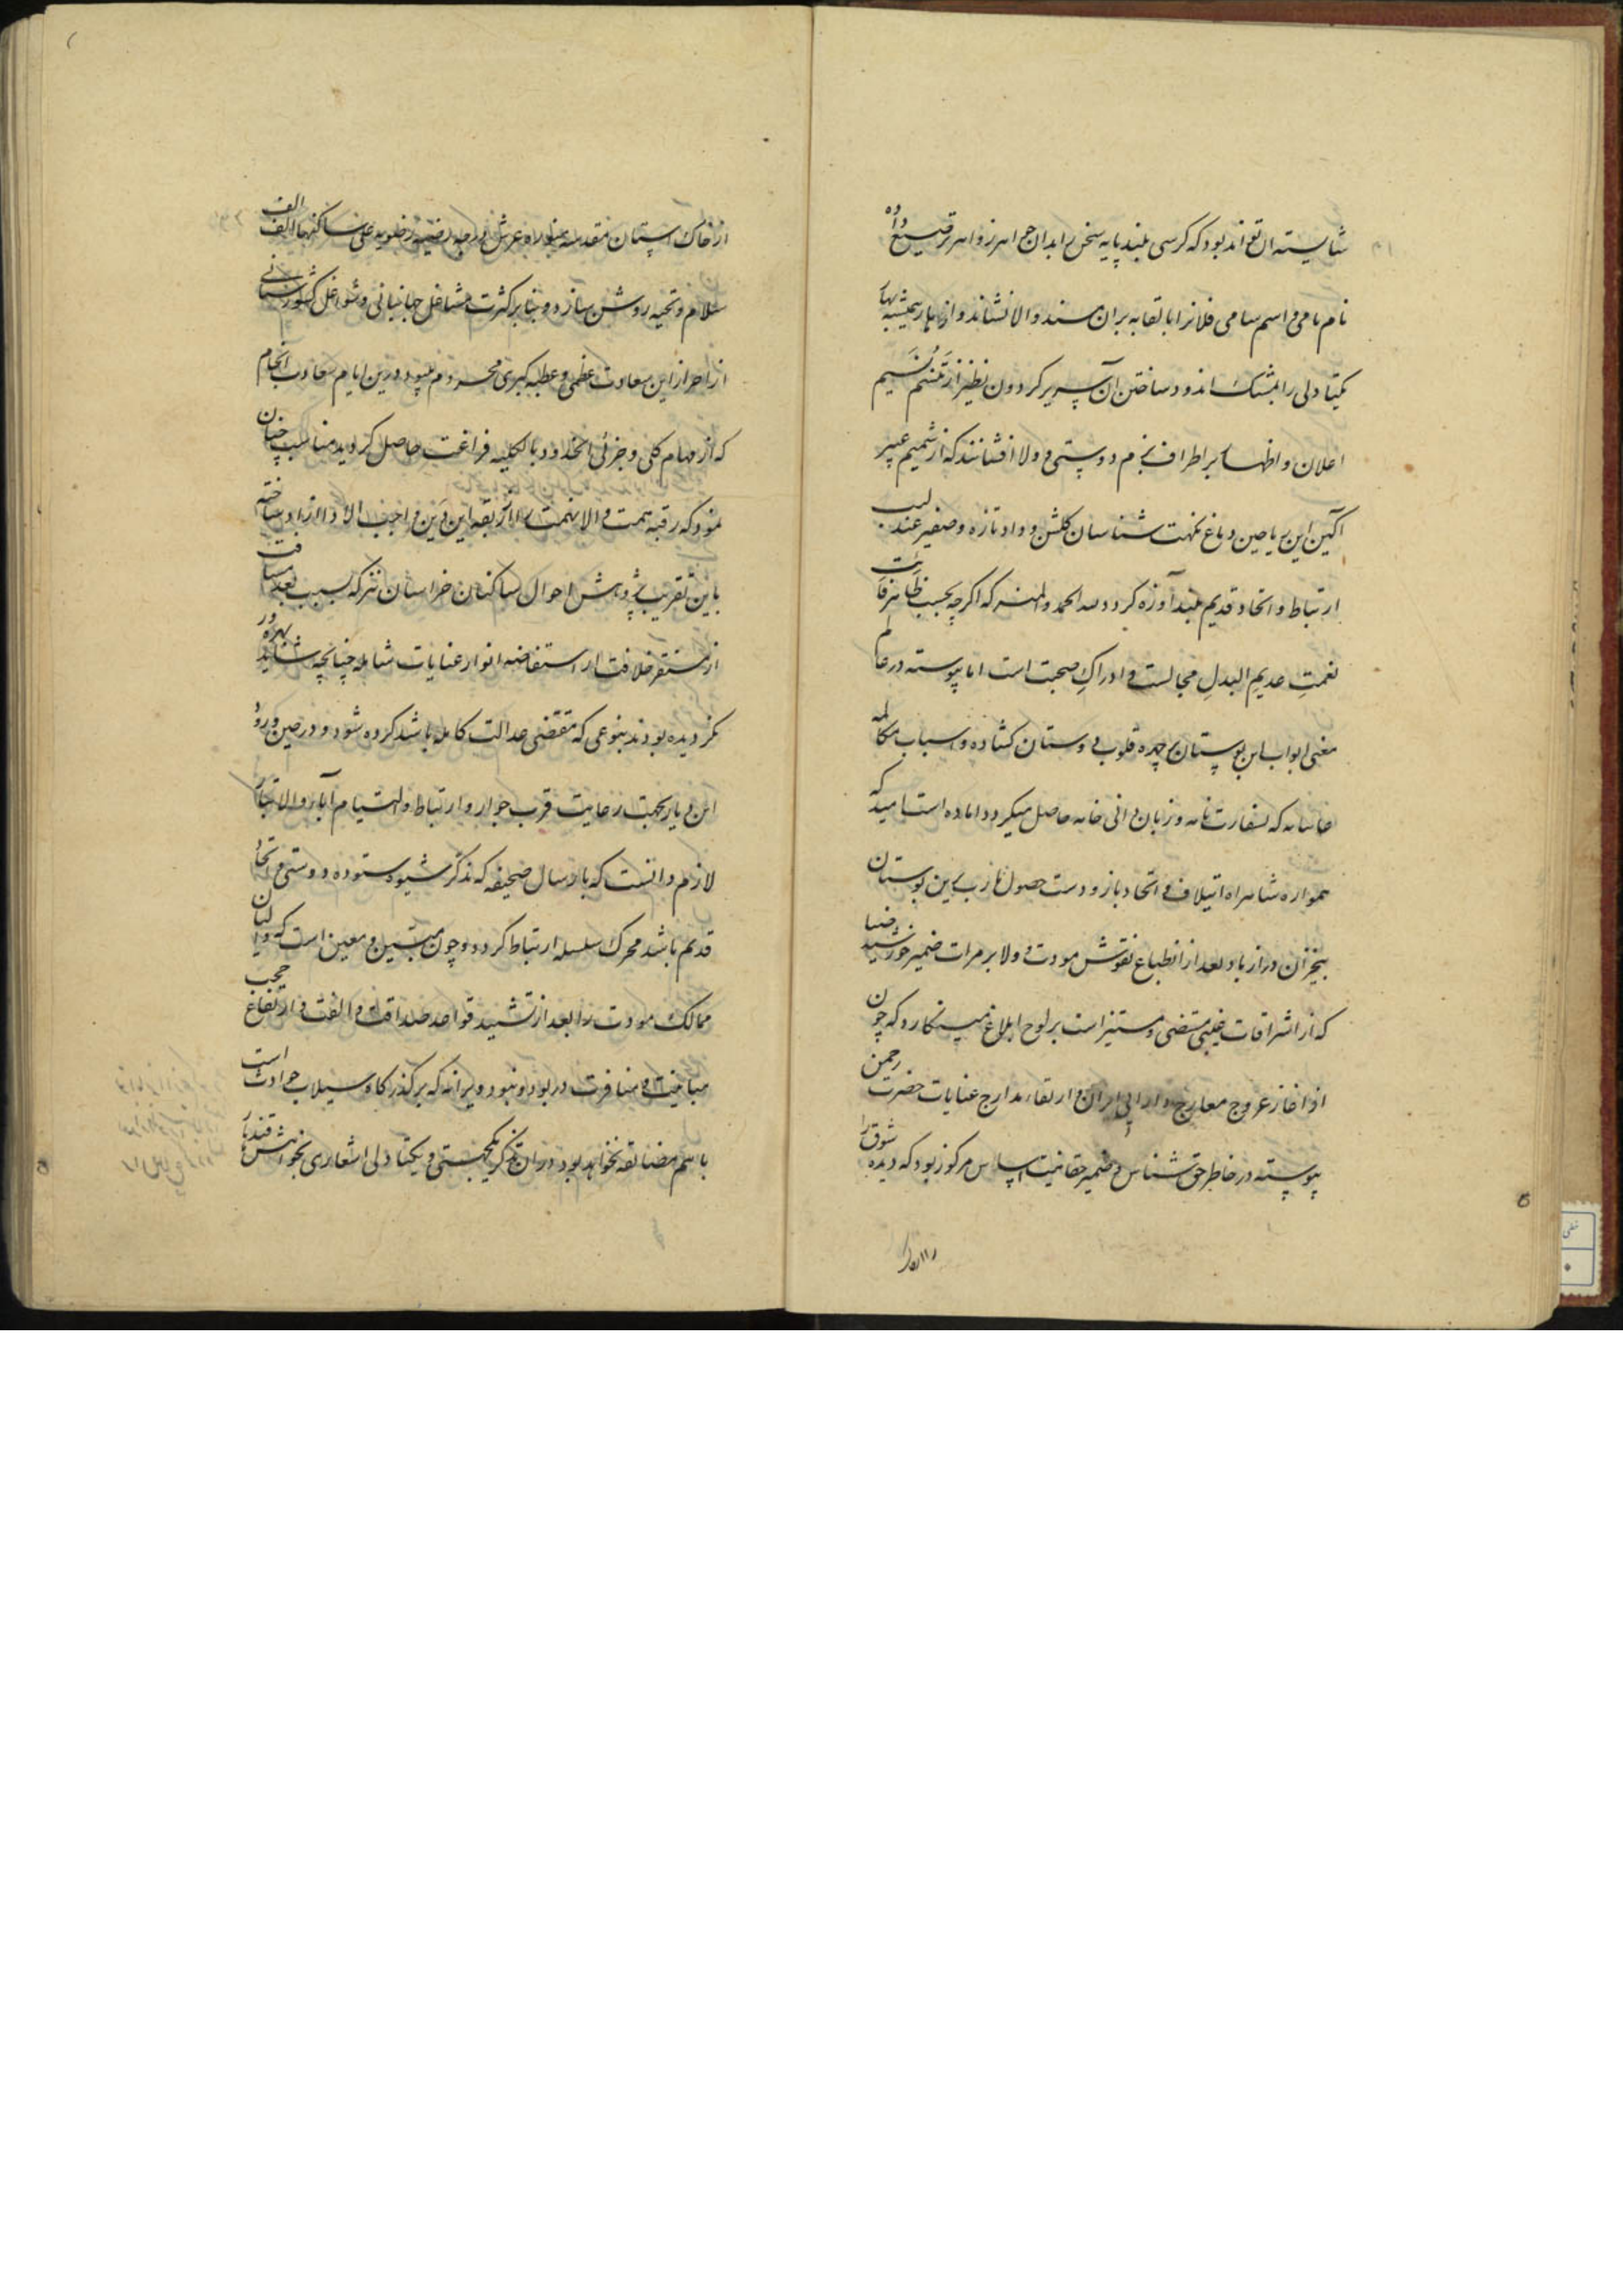 شایسته ان تواند بود که کرسی بلند پایه سخن را بدان جواهر زواهر ترصیع داده
نام نامی و اسم سامی فلانرا با القابه بران مسند والا نشاند و از بهار همیشه بهار
یکتا دلی را بمشک اندود ساختن آن سریر کردون نظیر از تنسم نسیم
اعلان و اظهار بر اطراف بزم دوستی و ولا افشانند که از شمیم عبیر
آکین این ریاحین دماغ نکهت شناسان کلشن وداد تازه و صفیر عندلیب
ارتباط و اتحاد قدیم بلند آوازه کردد لله الحمد والمنه که اکرچه بحسب ظاهر
نعمت عدیم البدل مجالست و ادراک صحبت است اما پیوسته در عالم
معنی ابواب این بوستان بر چهره قلوب دوستان کشاده و اسباب مکالمه
غائبانه که بسفارت نامه و زبان دانی خامه حاصل میکردد اماده است امید که
همواره شاهراه ایتلاف و اتحاد باز و دست حصول خار ب این بوستان
بیخزان دراز باد بعد از انطباع نقوش مودت و ولا بر مرات ضمیر خورشید ضیا
که از اشراقات غیبی مستضی و مستنیر است بر لوح ابلاغ مینکارد که چون
از آغاز عروج معارج دارائی ایران و ارتقاء مدارج عنایات حضرت رحمن
پیوسته در خاطر حق شناس و ضمیر حقانیت اساس مرکوز بود که دیده شوق را
از خاک آستان مقدسه منوره عرش درجه رضیه رضویه علی ساکنها الف الف
سلام و تحیه روشن سازد و بنا بر کثرت مشاغل جهانبانی و شواغل کشورستانی
از احراز این سعادت عظمی و عطیه کبری محروم میبود درین ایام سعادت انجام
که از مهام کلی و جزئی انحدود بالکلیه فراغت حاصل کردید مناسب چنان
نمود که رقبه همت والا نهمت را از ربقه این دین واجب الادا ازاد ساخته
باین تقریب پژوهش احوال ساکنان خراسان نیز که بسبب بعد مسافت
از مستقر خلافت از استفاضه انوار عنایات شامله چنانچه شاید بهره ور
نکردیده بودند بنوعی که مقتضی عدالت کامله باشد کرده شود و در حین ورود
این دیار بجهت رعایت قرب جوار و ارتباط و التیام آباء والا تبار
لازم دانست که بارسال صحیفه که مذکر شیوه ستوده دوستی و اتحاد
قدیم باشد محرک سلسله ارتباط کردد و چون مبین و معین است که والیان
ممالک مودت را بعد از تشیید قواعد صداقت و الفت و ارتفاع حجب
مباینت و منافرت در بود و نبود ویرانه که بر گذرکاه سیلاب حوادث است
با هم مضایقه نخواهد بود دران تذکره یکجهتی و یکتا دلی اشعاری بخواهش قندهار